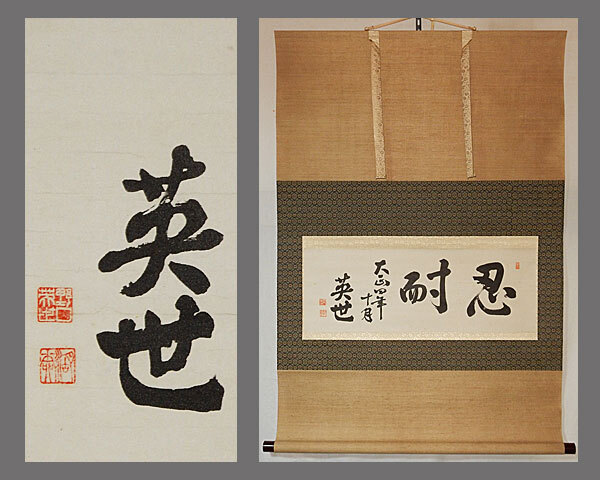 英世
忍耐
大正四年
十月
英世